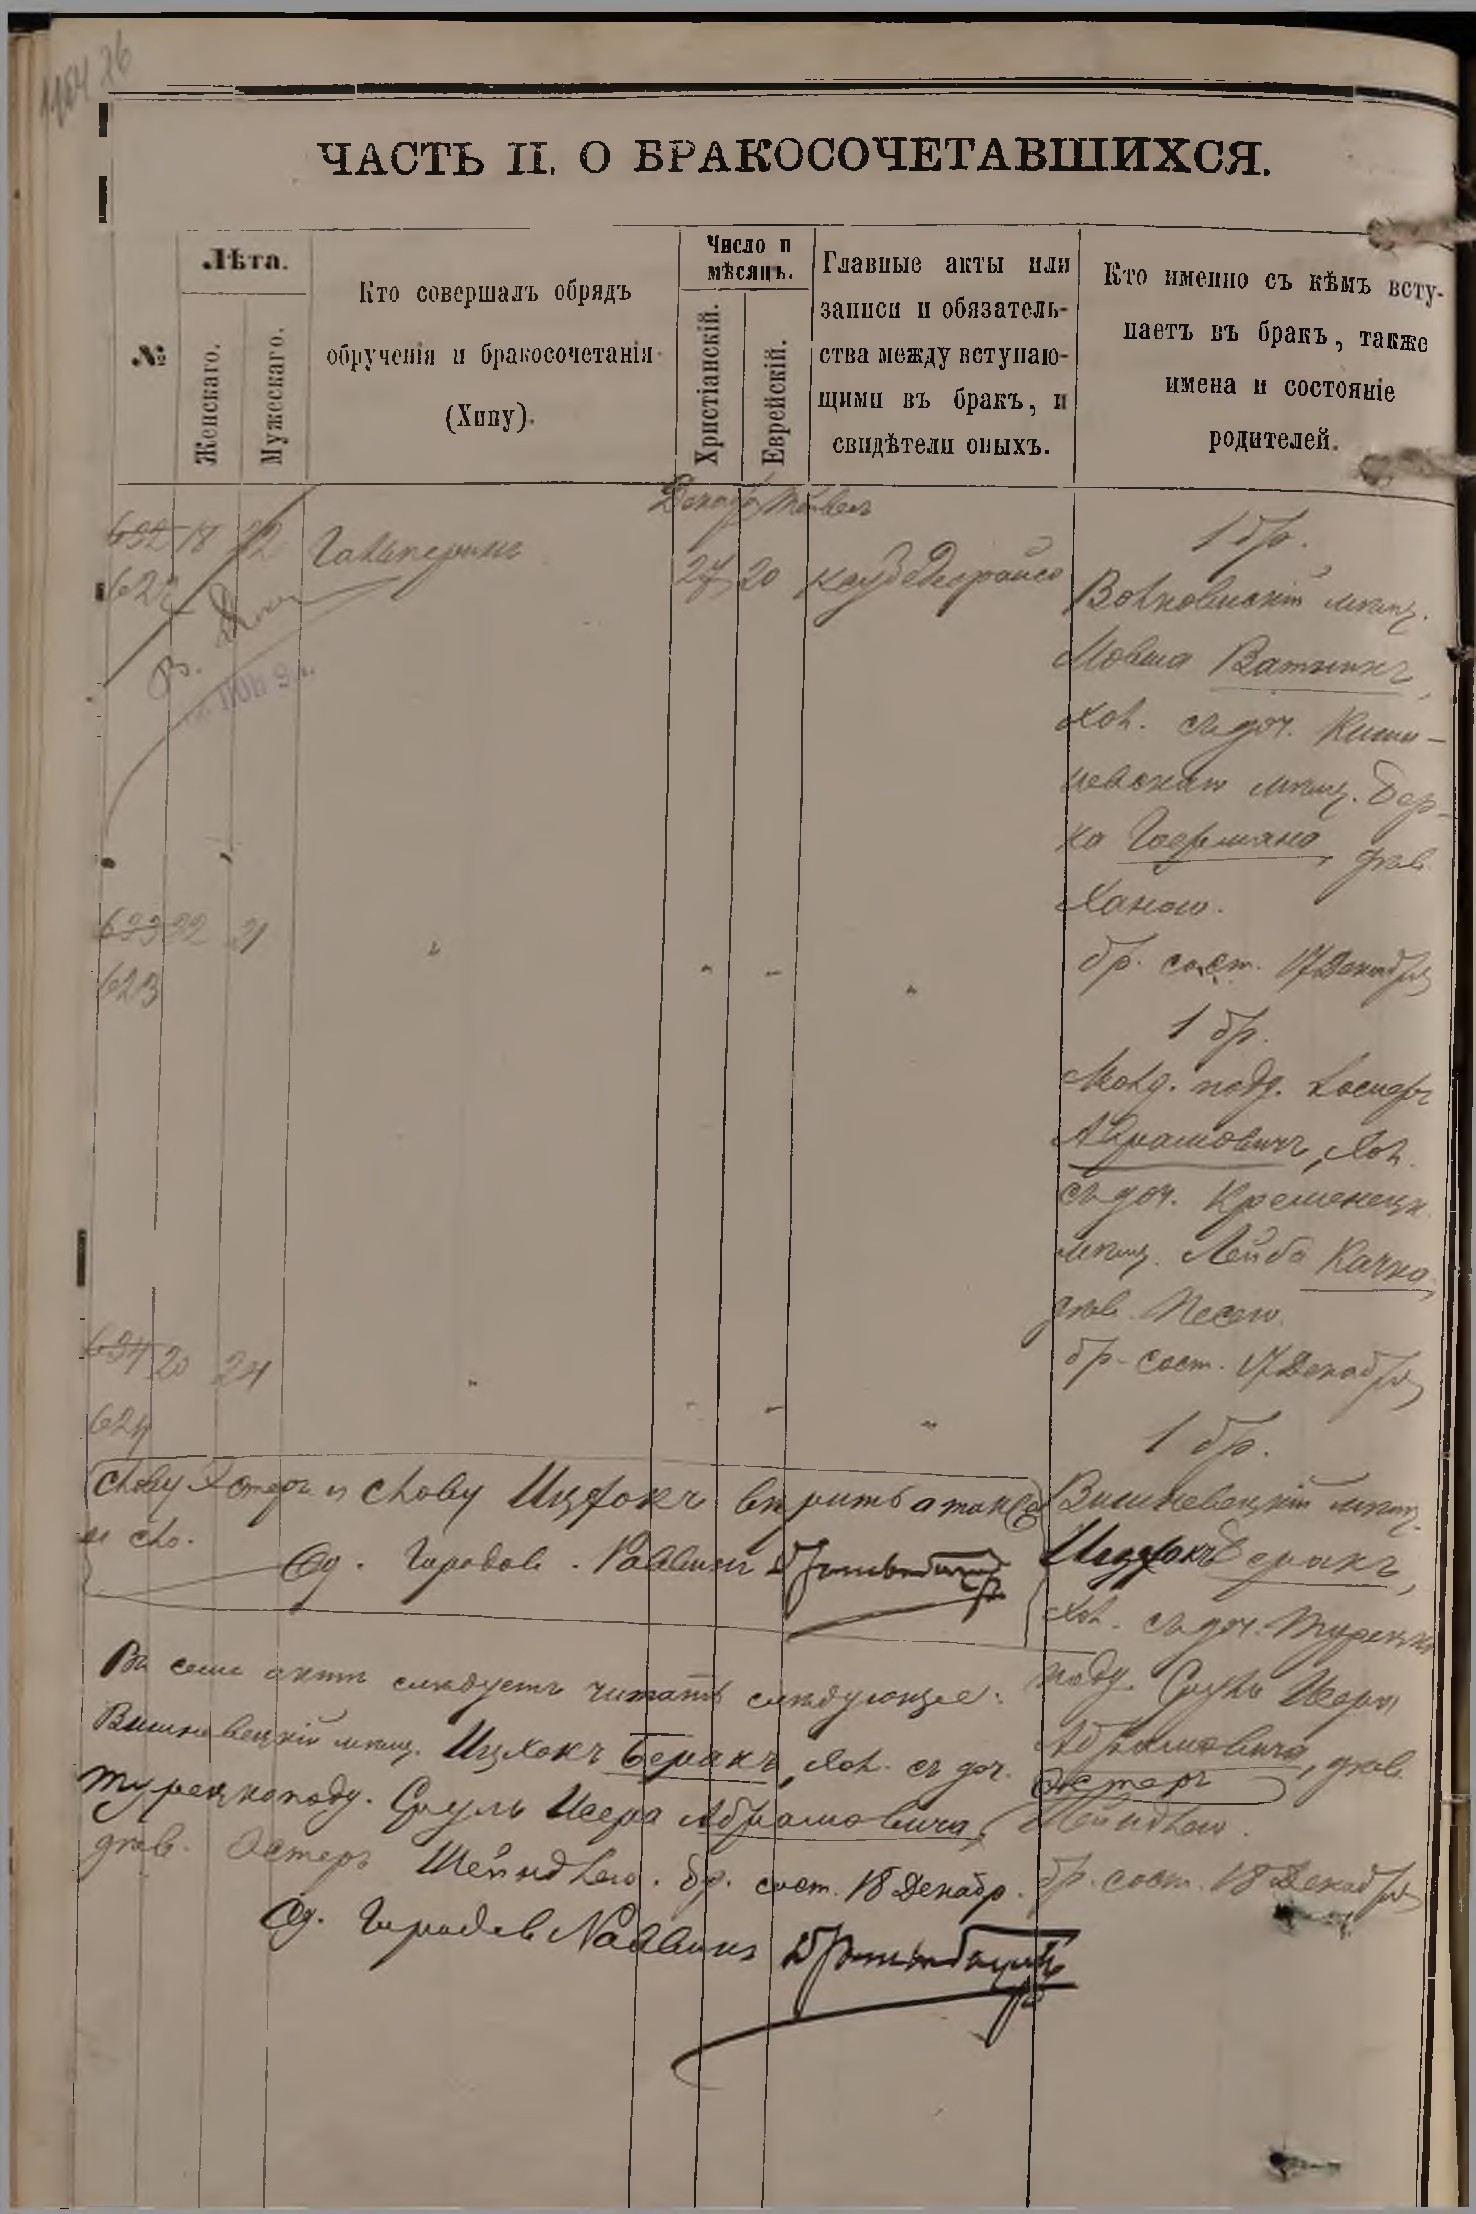 ЧАСТЬ II. О БРАКОСОЧЕТАВШИХСЯ.
№
Лѣта.
Женскаго.
Мужескаго.
Кто совершалъ обрядъ
обрученія и бракосочетанія
(Хипу).
Число и
мѣсяцъ.
Христіанскій.
Еврейскій.
Главные акты или
записи и обязатель-
ства между вступаю-
щими въ бракъ, и
свидѣтели оныхъ.
Кто именно съ кѣмъ всту-
паетъ въ бракъ, также
имена и состояніе
родителей.
632 18 22 Гальперинъ
622
27 20
1 бр.
мѣщ.
Мовша Ватникъ,
хол. съ доч. Киши-
невскаго мѣщ. Бер-
ка Гоермана, дѣв.
Ханою.
бр. сост. 17 Декабря
633 22 21 " " " "
623
1 бр.
Молд. подд. Іосифъ
Абрамовичъ, хол.
съ доч. Кременецк.
мѣщ. Лейба Качка,
дѣв. Песею.
бр. сост. 17 Декабря
634 20 24 " " " "
624
1 бр.
Вишневецкій мѣщ.
Ицхокъ Беракъ,
хол. съ доч. Турецко
подд. Сруль Исера
Абрамовича, дѣв.
Эстеръ
Шейндлею.
бр. сост. 18 Декабря
Слову Эстеръ и слову Ицхокъ вѣрить а так
и сло.
Од. Городов. Раввинъ
Въ семъ актѣ слѣдуетъ читать слѣдующее:
Вишневецкій мѣщ. Ицхокъ Беракъ, хол. съ доч.
Турецкоподд. Сруль Исера Абрамовича,
дѣв. Эстеръ Шейндлею. бр. сост. 18 Декабр.
Од. Городов Раввинъ